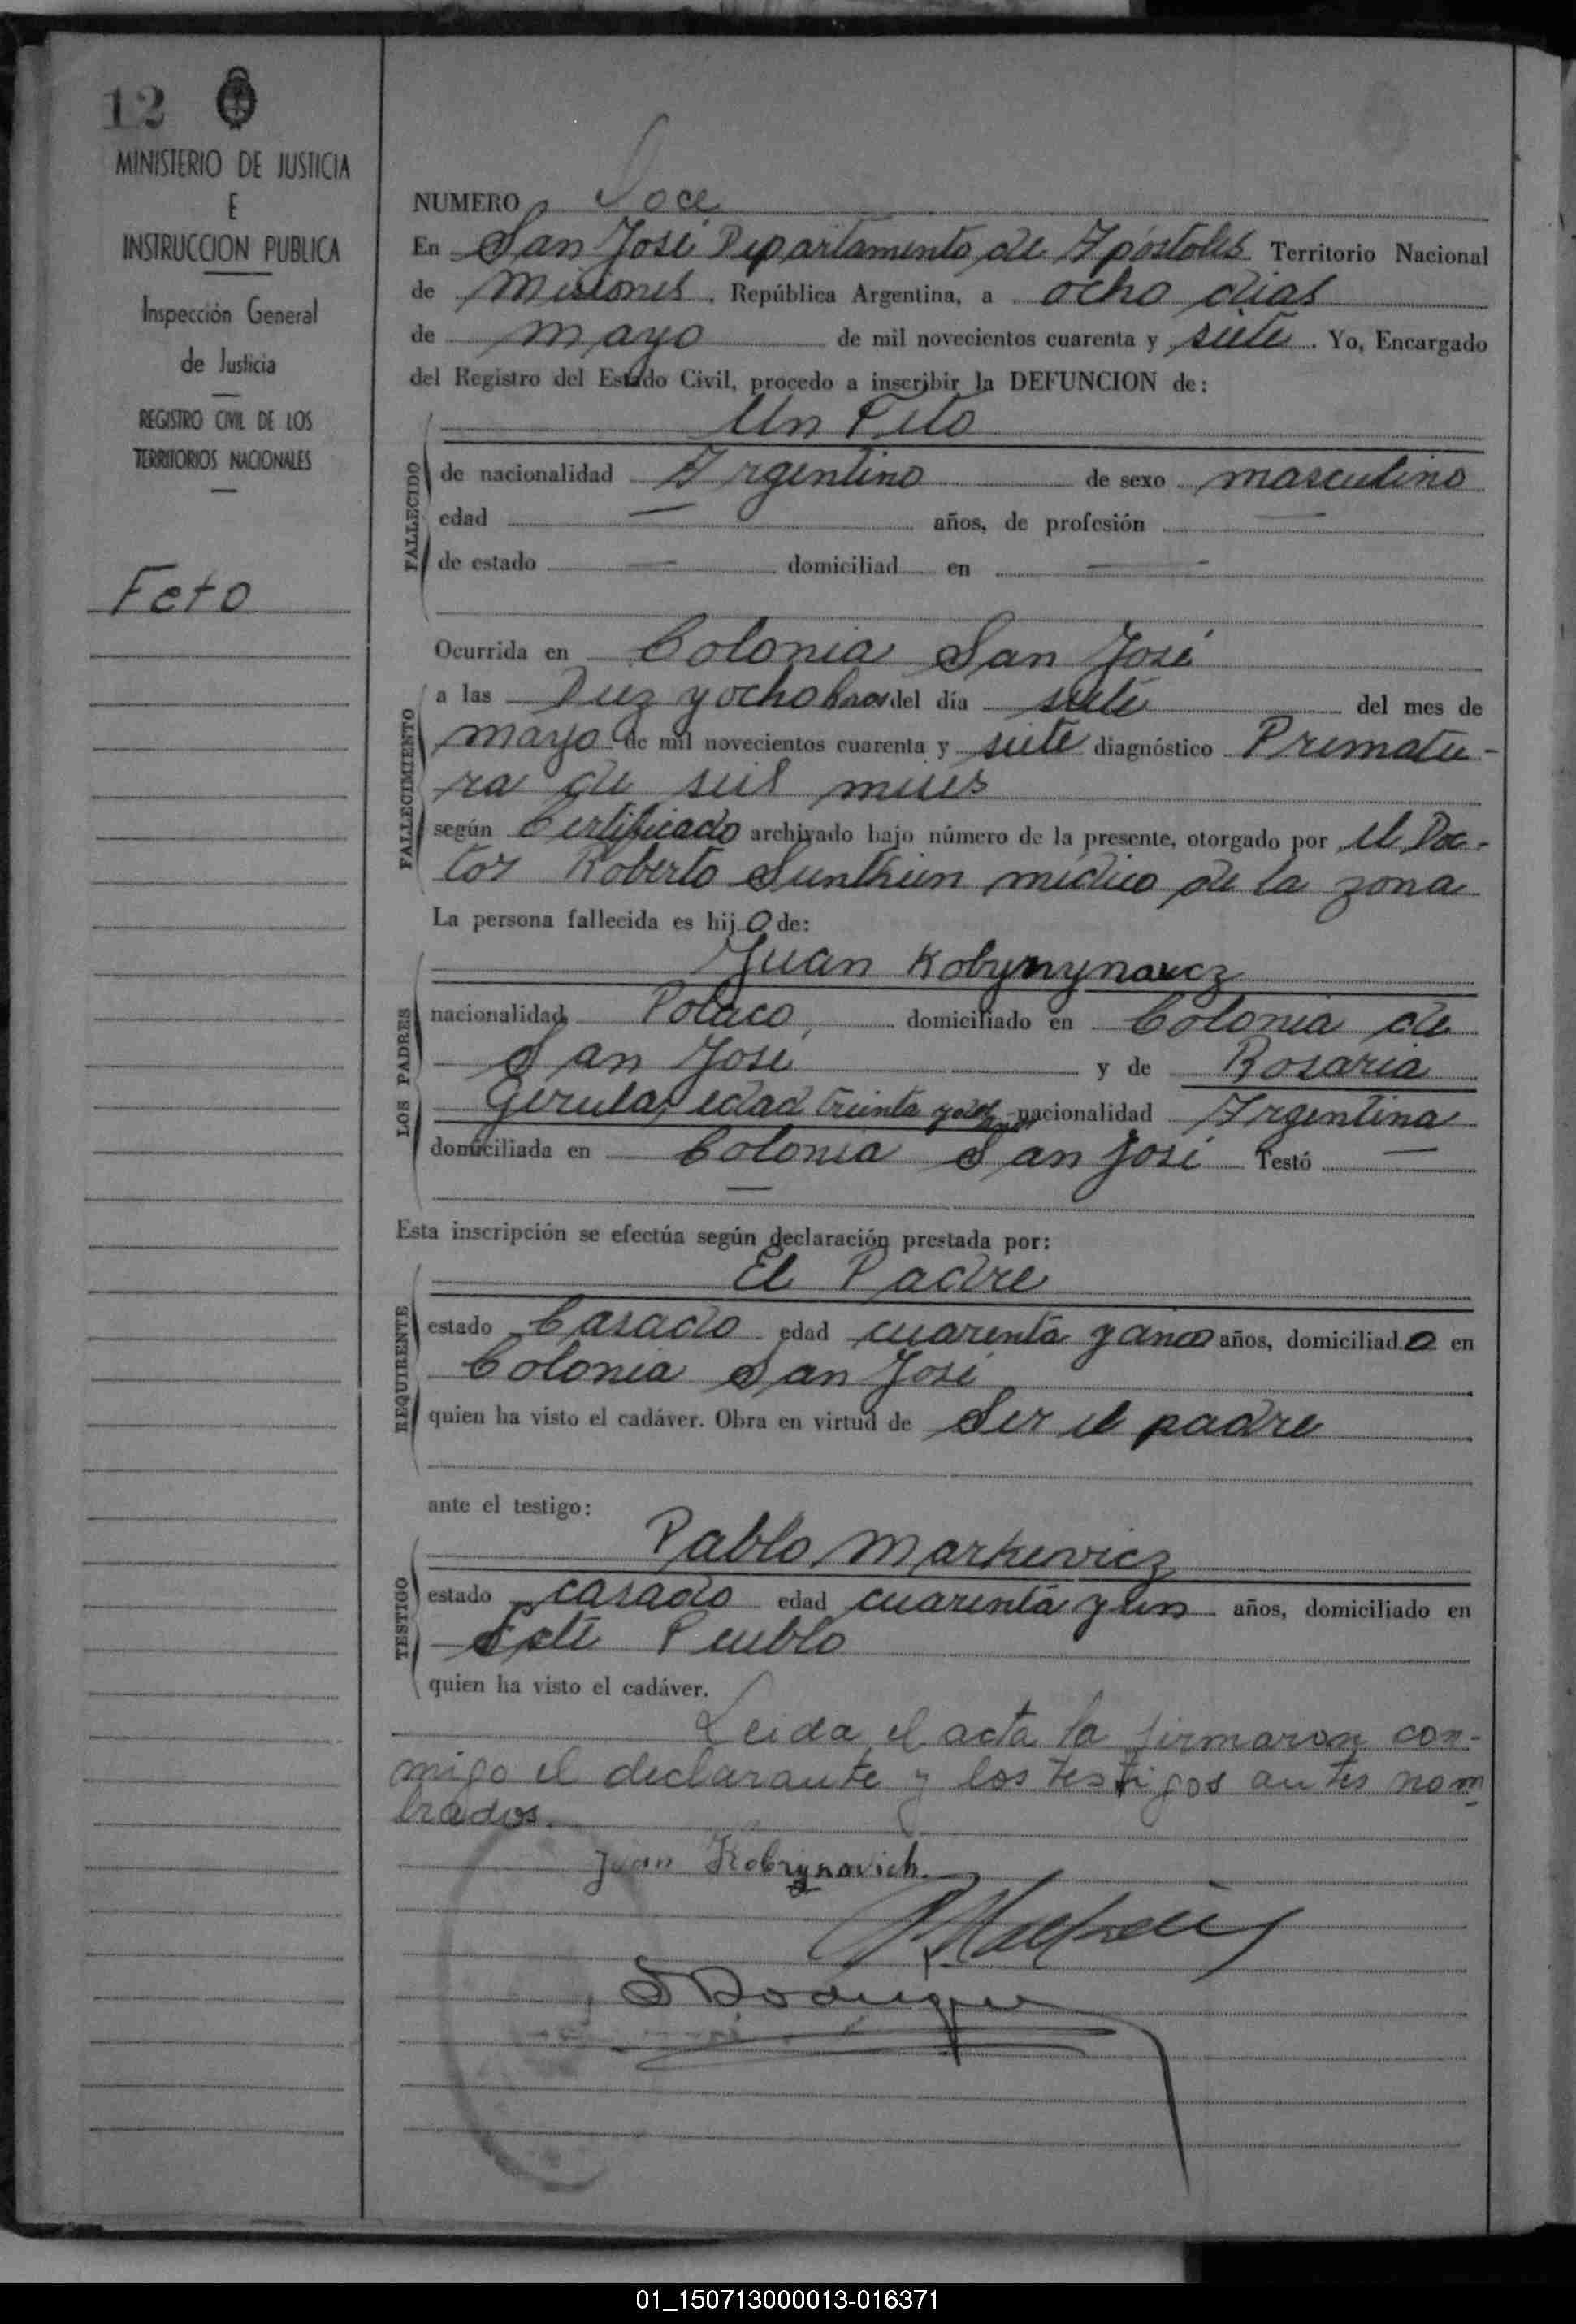 12
MINISTERIO DE JUSTICIA
E
INSTRUCCION PUBLICA
Inspección General
de Justicia
REGISTRO CIVIL DE LOS
TERRITORIOS NACIONALES
Feto
NUMERO Doce
En San José Departamento de Apóstoles Territorio Nacional
de Misiones, República Argentina, a ocho dias
de mayo de mil novecientos cuarenta y siete. Yo, Encargado
del Registro del Estado Civil, procedo a inscribir la DEFUNCION de:
Un Feto
FALLECIDO
de nacionalidad Argentino de sexo masculino
edad — años, de profesión —
de estado — domiciliad en —
Ocurrida en Colonia San José
FALLECIMIENTO
a las Diez y ocho horas del día siete del mes de
mayo de mil novecientos cuarenta y siete diagnóstico Prematu-
ra de seis meses
según Certificado archivado bajo número de la presente, otorgado por el Doc-
tor Roberto médico de la zona
La persona fallecida es hijo de:
LOS PADRES
Juan Kobynynavcz
nacionalidad Polaco, domiciliado en Colonia de
San José y de Rosaria
Gerula, edad treinta y dos años nacionalidad Argentina
domiciliada en Colonia San José Testó —
—
Esta inscripción se efectúa según declaración prestada por:
REQUIRENTE
El Padre
estado Casado edad cuarenta y cinco años, domiciliado en
Colonia San José
quien ha visto el cadáver. Obra en virtud de Ser el padre
ante el testigo:
TESTIGO
Pablo Markewicz
estado casado edad cuarenta y un años, domiciliado en
Este Pueblo
quien ha visto el cadáver.
Leida el acta la firmaron con-
migo el declarante y los testigos antes nom
brados.
Juan Kobrynovich.
01_150713000013-016371